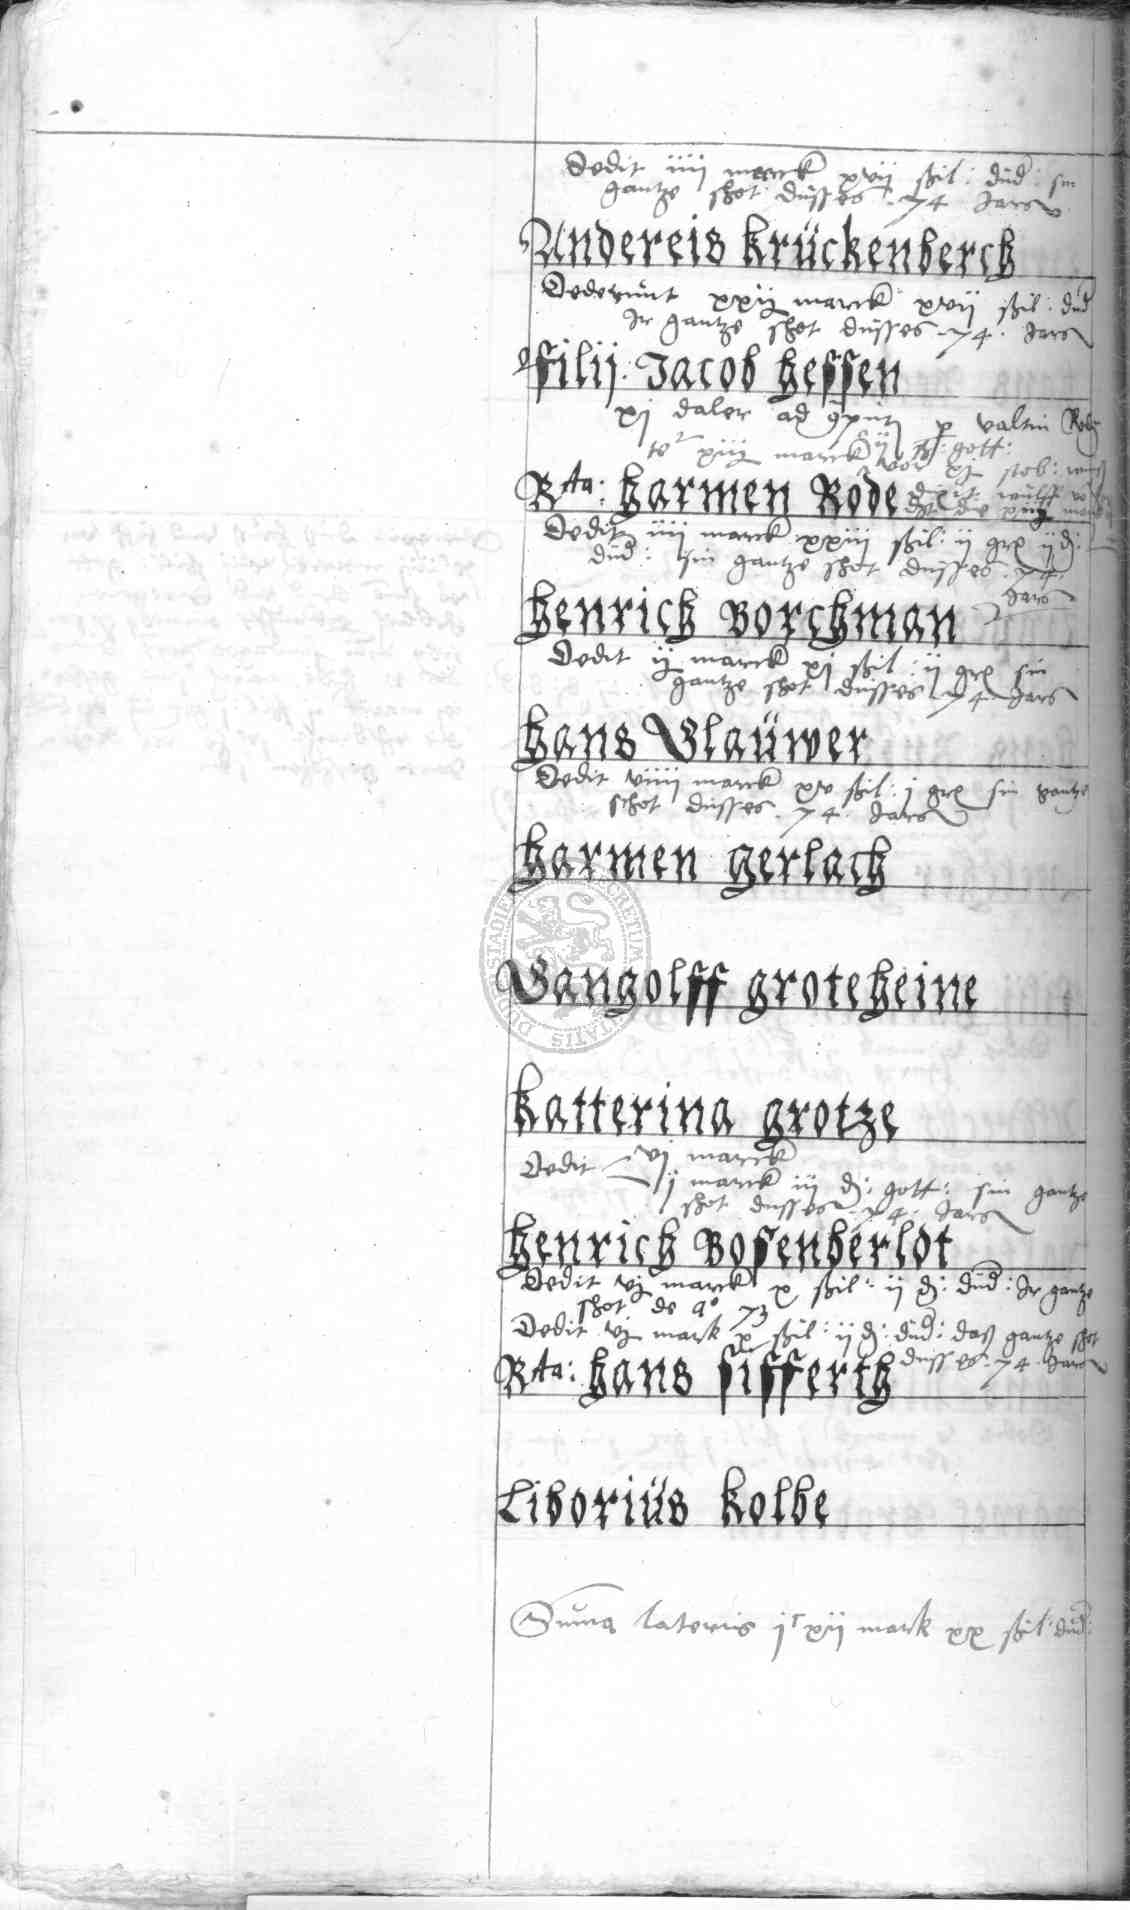 Dedit iiii marck xvii ßil: dud: sin
gantze schot dusses .74. Jars
Andereis Krückenberch
Dederunt xxij marck xvii ßil: dud
Ir gantze schot dusses .74. Jars
filij. Jacob Hessen
xj daler ad p valtin Rode
xiij marck gott:
Rta: Harmen Rode
Dedit iiii marck xxiii ßil: ii gra ij d:
dud: sin gantze schot dusses .74.
Jars
Henrich Borchman
Dedit ij marck xj ßil: ij gra sin
gantze schot dusses .74. Jars
Hans Glaüwer
Dedit viiii marck xv ßil: j gra sin gantze
schot dusses .74. Jars
Harmen Gerlach
Gangolff groteheine
Katterina grotze
Dedit vj marck
j marck iii d: gott: sin gantze
schot dusses .74. Jars
Henrich Bosenberldt
Dedit vj marck x ßil: ii d: dud: Ir gantze
schot de ao 73
Dedit vj mark x ßil: ij d: dud: daß gantze schot
dusses .74. Jars
Rta: Hans sifferth
Liboriüs Kolbe
Suma lateris jc xij mark xx ßil: dud: